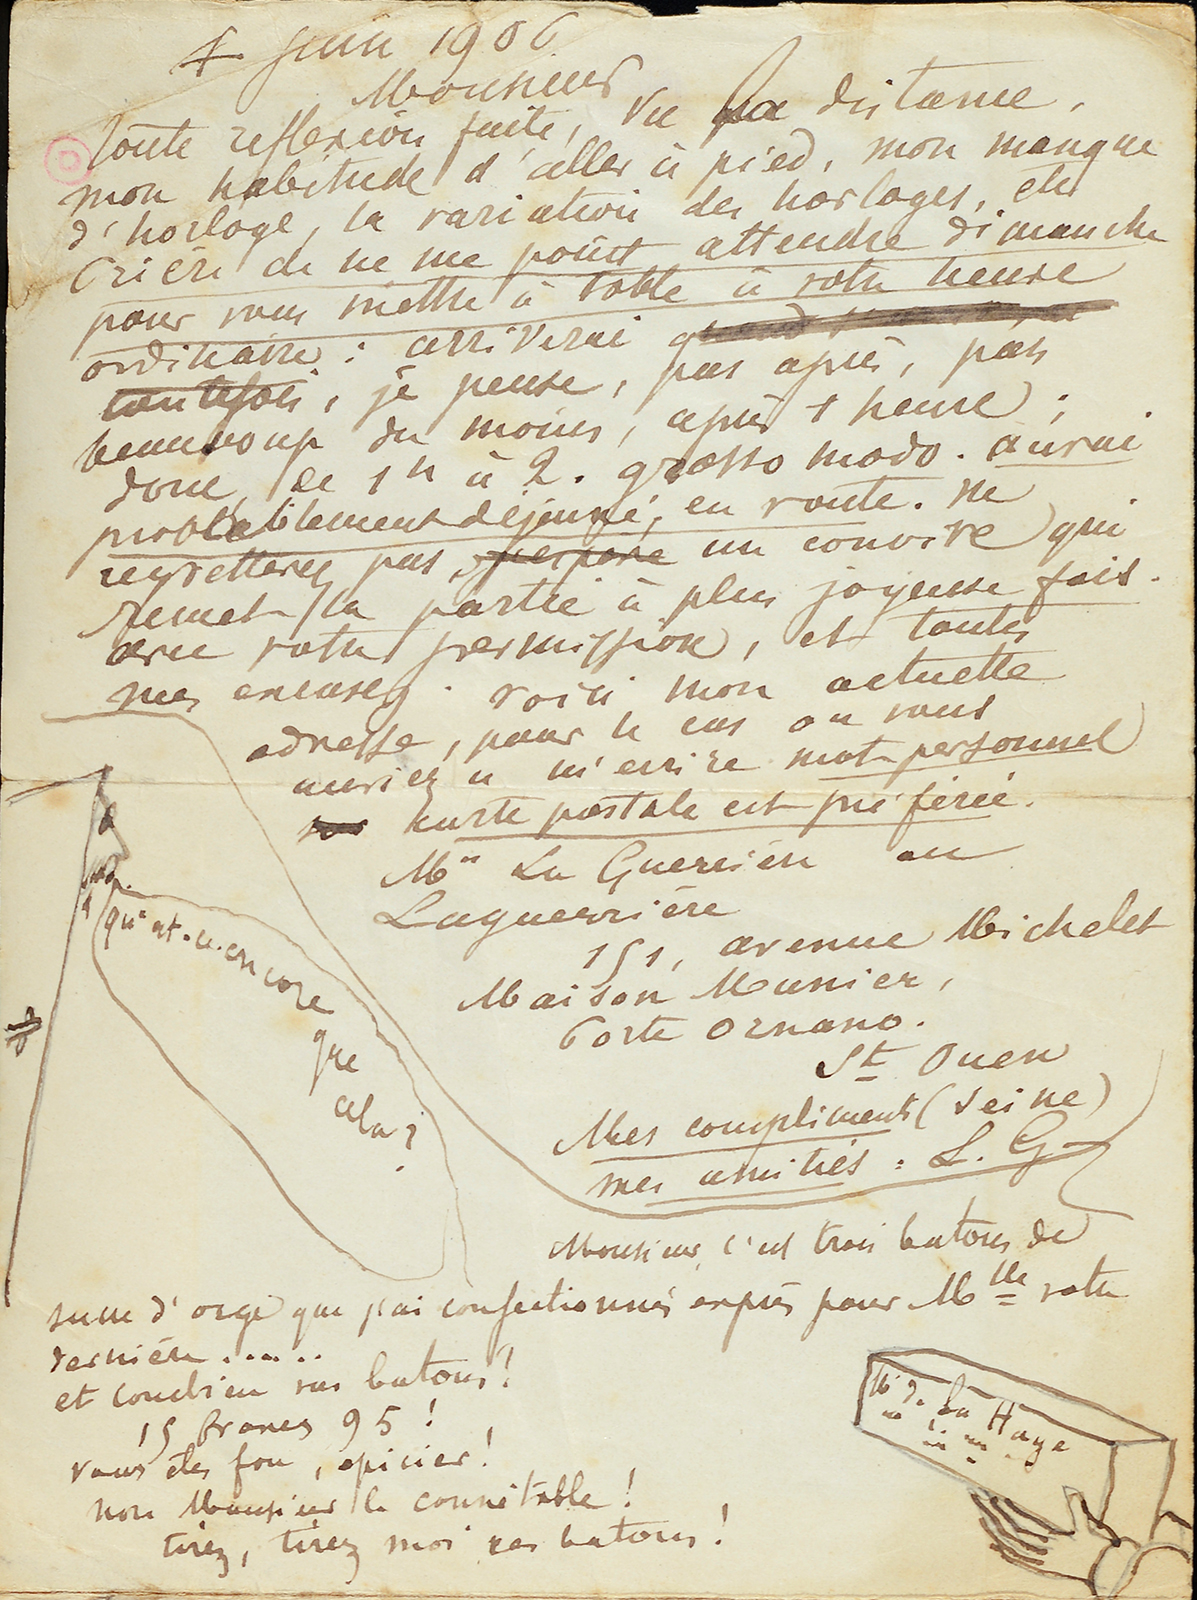 4 juin 1906
Monsieur
Toute réflexion faite, vu la distance,
mon habitude d'aller à pied, mon manque
d'horloge, la variation des horloges, etc
Prière de ne me point attendre dimanche
pour vous mettre à table à votre heure
ordinaire : arriverai
toutefois, je pense, pas après, pas
beaucoup du moins, après 1 heure ;
donc, de 1h à 2. grosso modo. aurai
probablement déjeuné, en route. Ne
regretterez pas un convive qui
remet la partie à plus joyeuse fois.
avec votre permission, et toutes
mes excuses. voici mon actuelle
adresse, pour le cas où vous
auriez à m'écrire mot personnel
carte postale est préférée.
Mr La Guerrière ou
Laguerrière
151, avenue Michelet
Maison Meunier,
Porte Ornano.
St Ouen
(Seine)
Mes compliments
mes amitiés : L. G.
qu'est-ce encore
que
cela ?
Monsieur, c'est trois batons de
sucre d'orge que j'ai confectionnés exprès pour Mlle votre
dernière.....
et combien vos batons ?
15 francs 95 !
vous êtes fou, épicier !
non Monsieur le connétable !
tirez, tirez moi ces batons !
La Haye